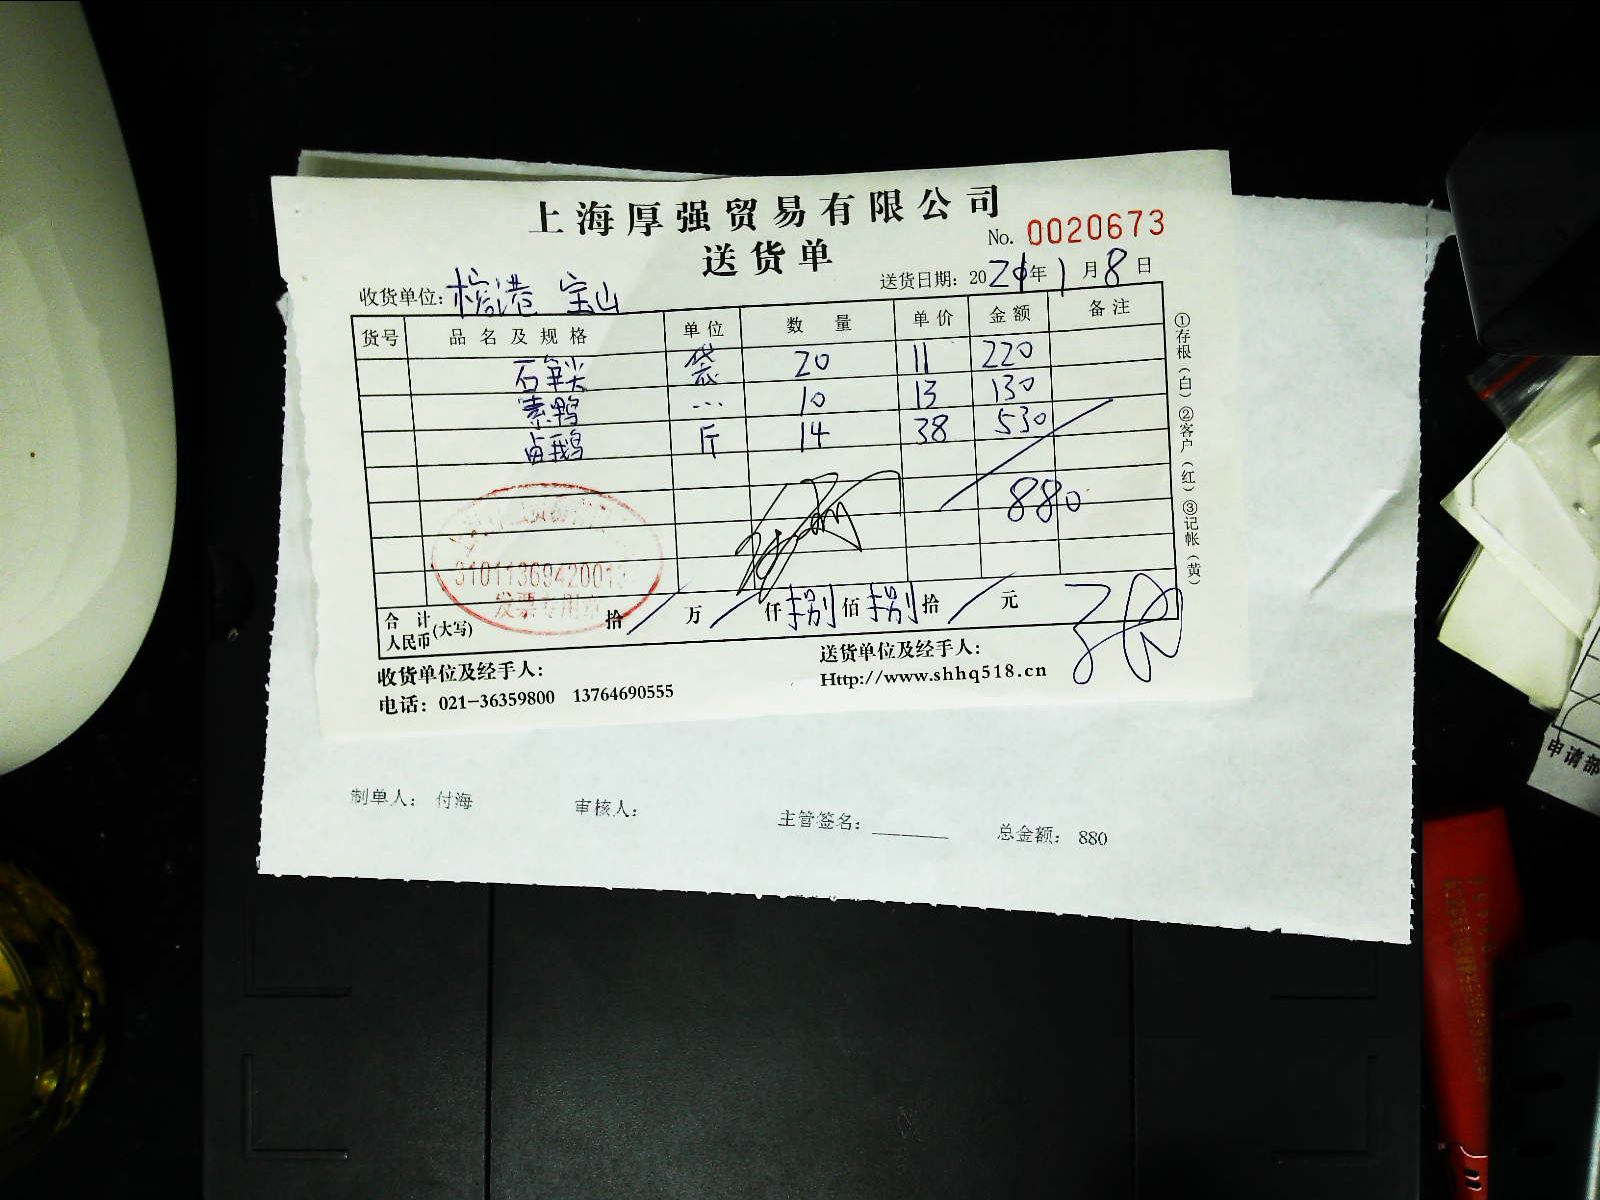 上海厚强贸易有限公司
送货单
No. 0020673
收货单位: 港 宝山
送货日期: 2021年1月8日
货号 品名及规格 单位 数量 单价 金额 备注
石 尖 袋 20 11 220
素鸭 … 10 13 130
卤鹅 斤 14 38 530
880
31011369420013
发票专用章
合计人民币(大写) 拾 / 万 / 仟 捌 佰 捌 拾 / 元
收货单位及经手人:
送货单位及经手人:
电话: 021-36359800 13764690555
Http://www.shhq518.cn
①存根(白) ②客户(红) ③记帐(黄)
制单人: 付海 审核人: 主管签名: 总金额: 880
申请部